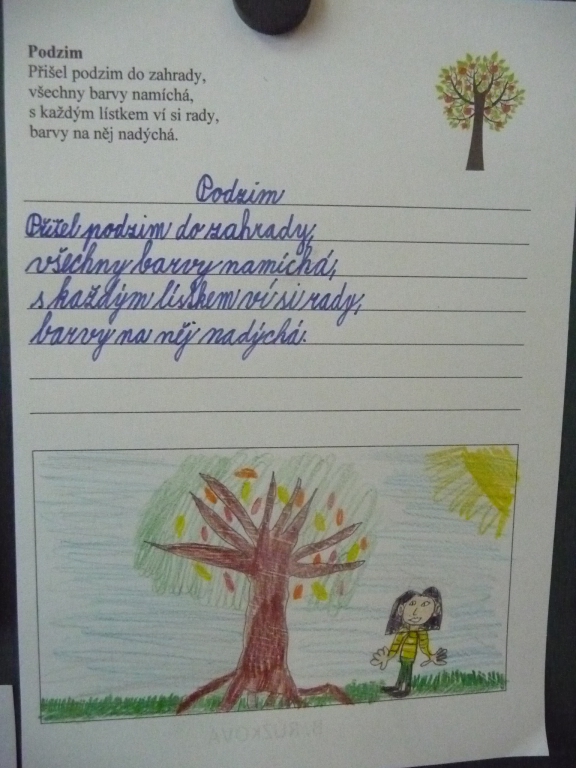 Podzim
Přišel podzim do zahrady,
všechny barvy namíchá,
s každým lístkem ví si rady,
barvy na něj nadýchá.
Podzim
Přišel podzim do zahrady,
všechny barvy namíchá,
s každým lístkem ví si rady,
barvy na něj nadýchá.
B. RŮŽKOVÁ